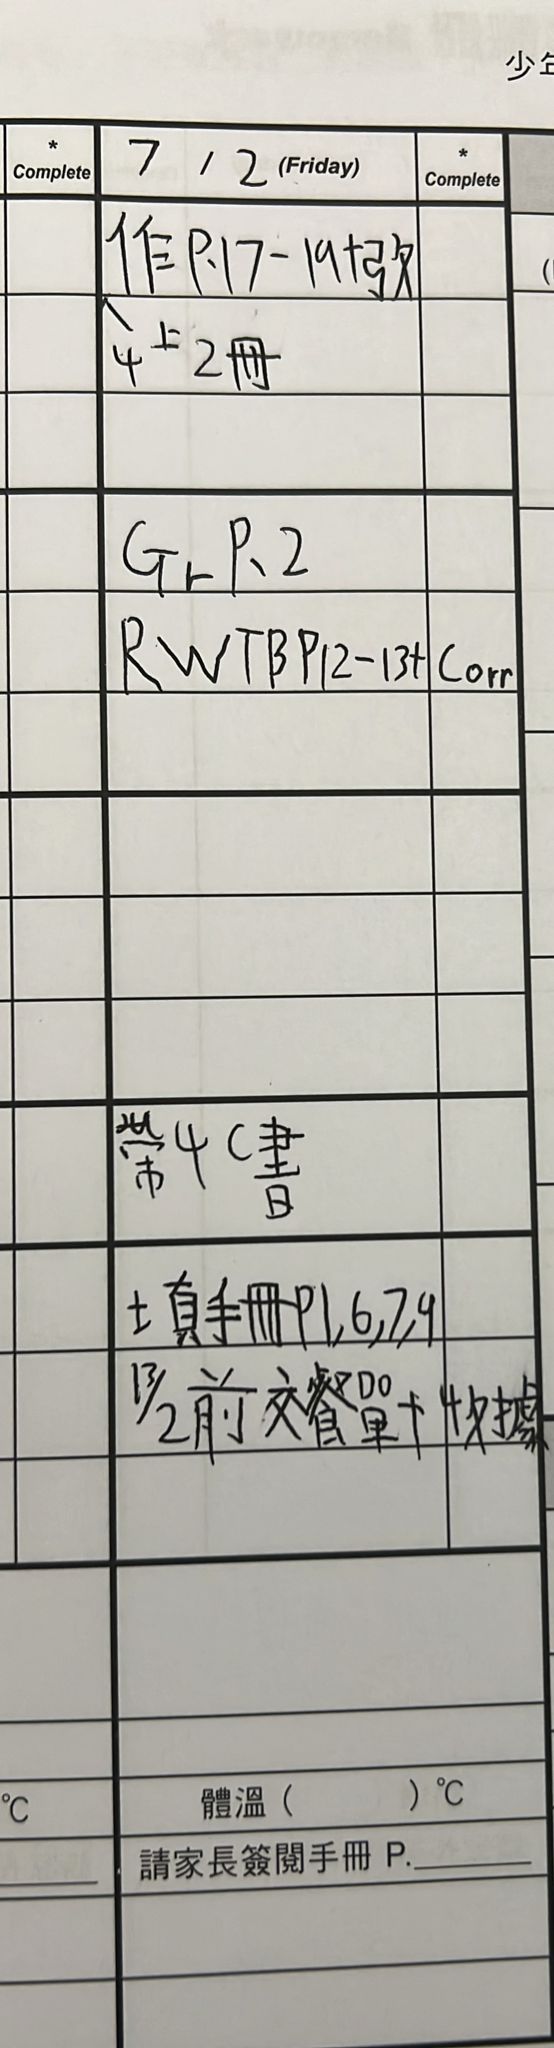 少年
*
Complete
7 / 2 (Friday)
*
Complete
作P.17-19+改
4上2冊
Gr P.2
RWTB P12-13+ Corr
帶4C書
填手冊P1,6,7,9
13/2前交餐單+收據
°C
體溫 (        ) °C
請家長簽閱手冊 P.